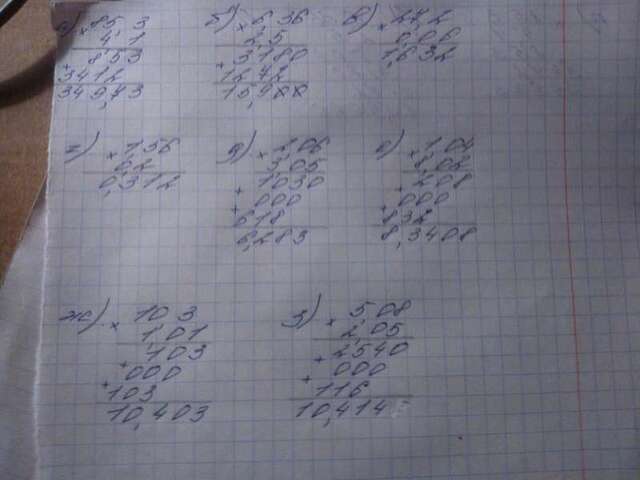 а) × 85,3
4,1
+ 853
3412
349,73
б) × 6,36
2,5
+ 3180
1272
15,900
в) × 27,2
0,06
1,632
г) × 1,56
0,2
0,312
д) × 2,06
3,05
+ 1030
+ 000
618
6,283
е) × 1,04
8,02
+ 208
+ 000
832
8,3408
ж) × 10 3
1,01
103
+ 000
+ 103
10,403
з) × 5,08
2,05
+ 2540
+ 000
116
10,414